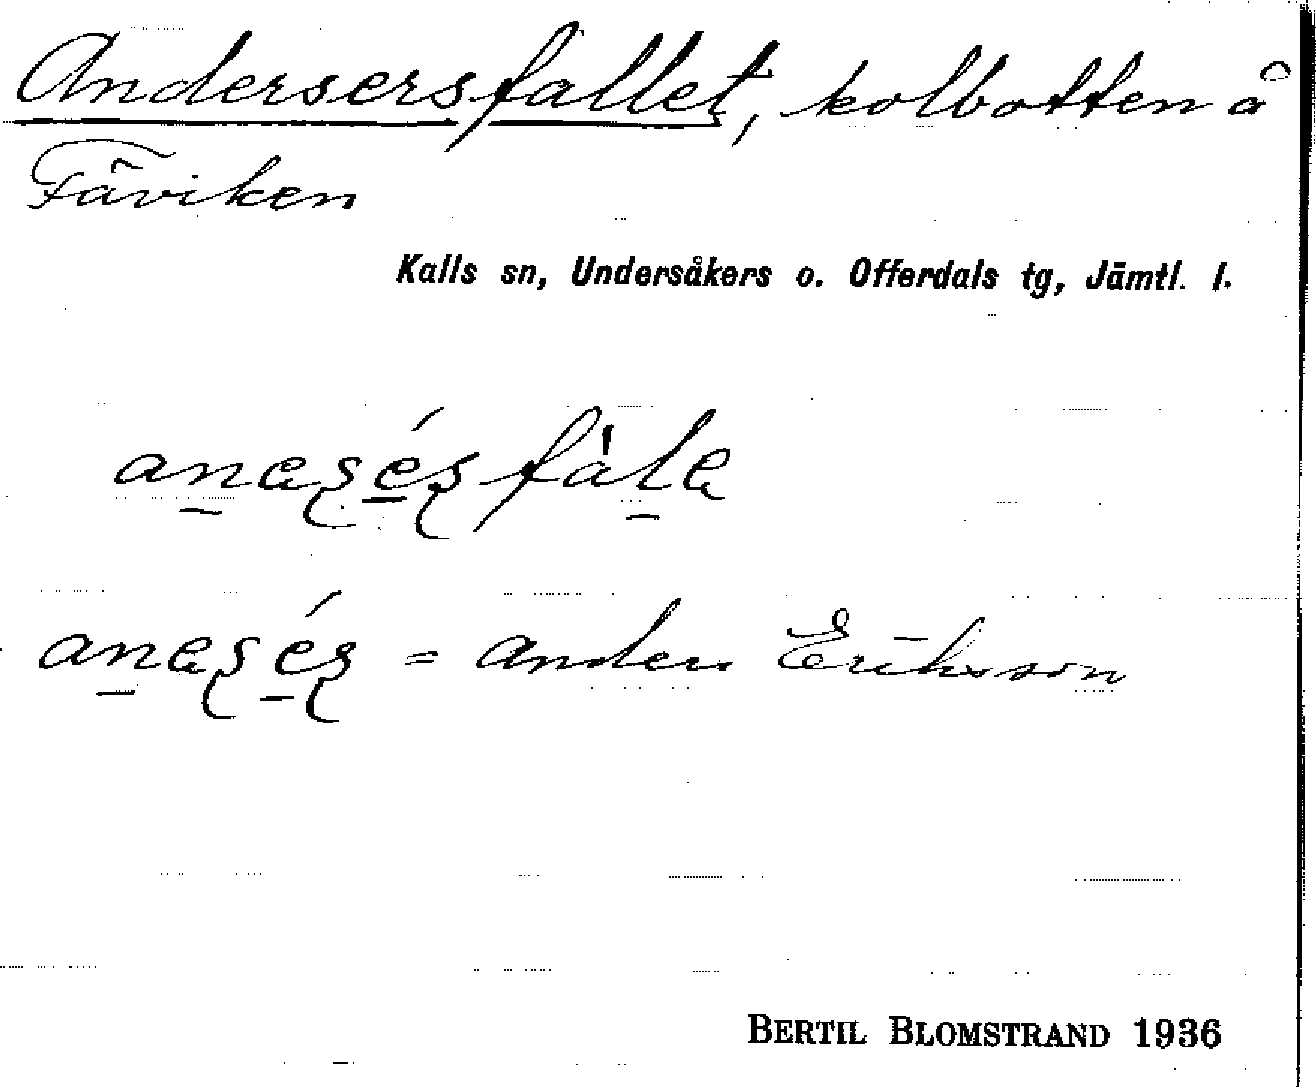 Andersersfallet, kolbotten å
Fäviken
Kalls sn, Undersåkers o. Offerdals tg, Jämtl. l.
= Anders Eriksson
BERTIL BLOMSTRAND 1936